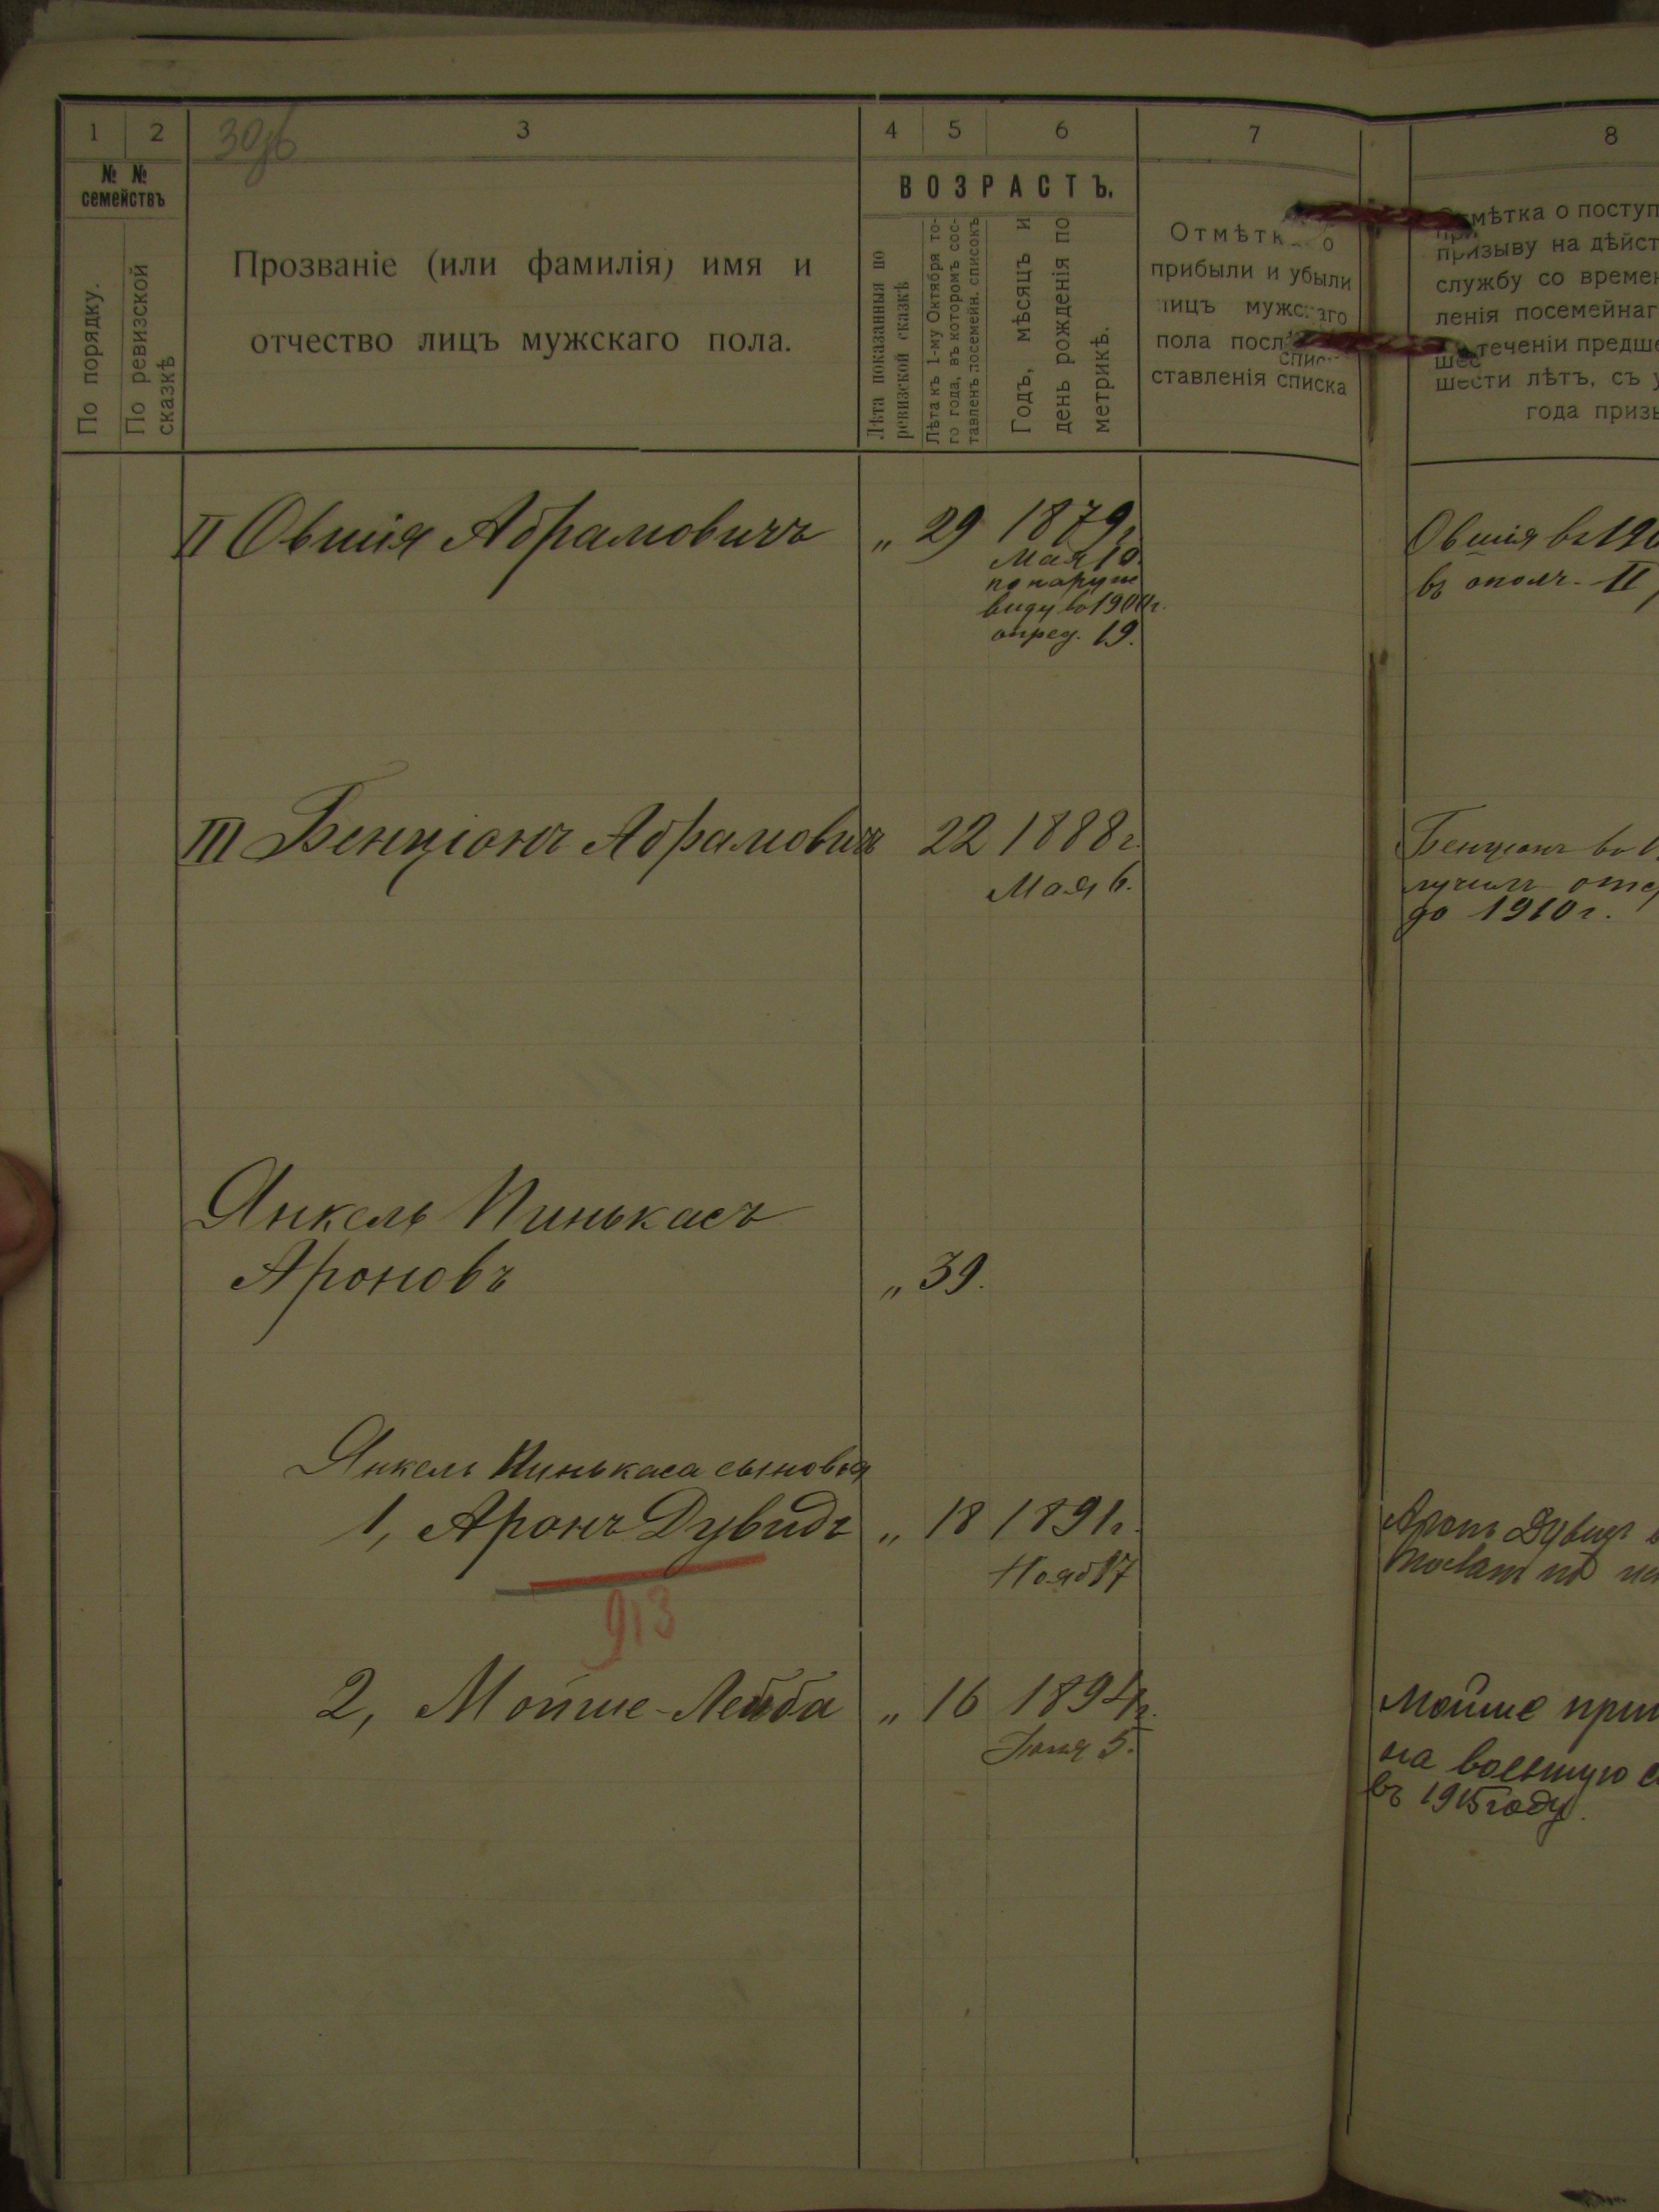 1 2 3 4 5 6 7 8
№ № семействъ
По порядку.
По ревизской сказкѣ
Прозваніе (или фамилія) имя и
отчество лицъ мужскаго пола.
ВОЗРАСТЪ.
Лѣта показанныя по
ревизской сказкѣ
Лѣта къ 1-му Октября то-
го года, въ которомъ сос-
тавленъ посемейн. списокъ
Годъ, мѣсяцъ и
день рожденія по
метрикѣ.
Отмѣтка о
прибыли и убыли
лицъ мужскаго
пола посл
ставленія списка
мѣтка о поступ
призыву на дѣйст
службу со времен
ленія посемейнаг
теченіи предше
шести лѣтъ, съ у
года призы
II Овшія Абрамовичъ „ 29 1879г
Мая 10.
по наруж
виду въ 1900г.
опред. 19.
Овшія въ 190
въ ополч. II
III Бенціонъ Абрамовичъ 22 1888г.
Мая 6.
Бенціонъ въ 1
лучилъ отс
до 1910г.
Янкель Пинькасъ
Ароновъ „ 39.
Янкель Пинькаса сыновья
1, Аронъ Дувидъ „ 18 1891г.
Нояб 17
913
Аронъ Дувидъ
2, Мойше-Лейба „ 16 1894г.
Іюня 5.
Мойше прин
на военную с
въ 1915 году.